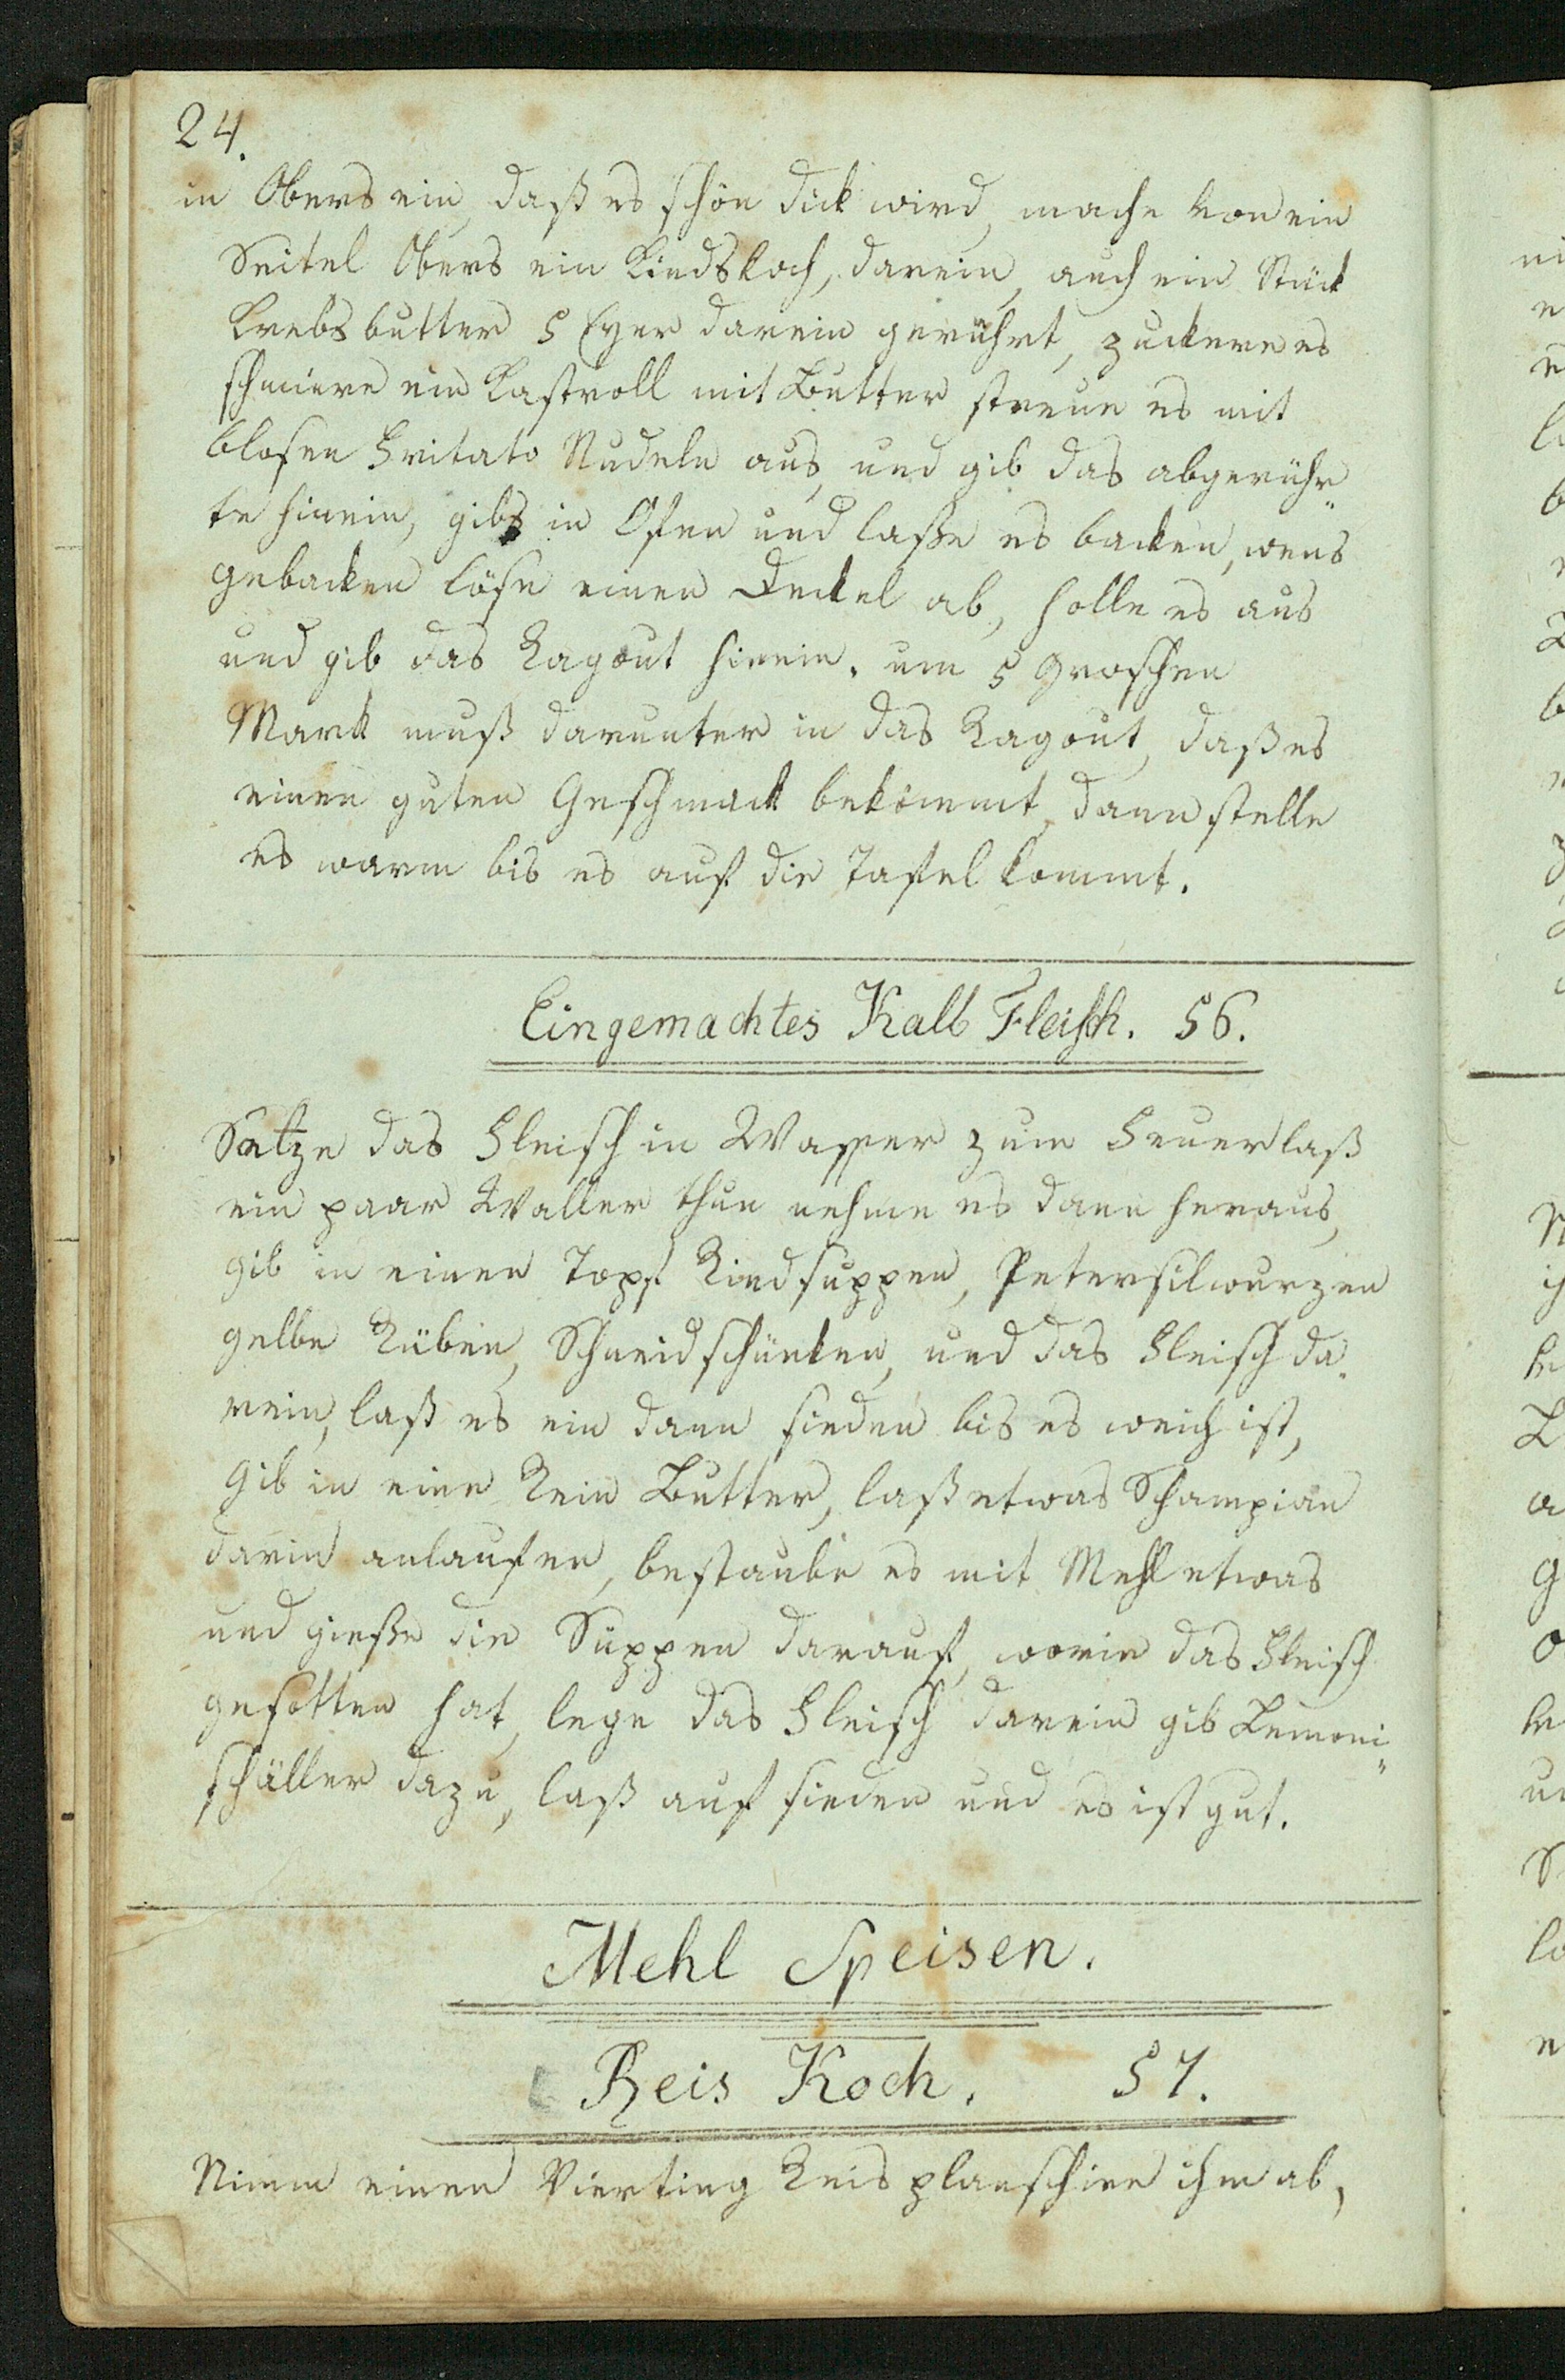 24.
in Obers ein, daß es schön dick wird, mache von ein
Seitel Obers ein Kindskoch, darein, auch ein Stück
Krebsbutter 5 Eyer darein gerührt, zuckere es
schmiere ein Kastroll mit Butter streue es mit
blosen Fritato Nudeln aus, und gib das abgerühr„
te hinein, gibs in Ofen und laße es backen, wens
gebacken löse einen Deckel ab, holle es aus
und gib das Ragout hinein. um 5 Groschen
Mark muß darunter in das Ragout, daß es
einen guten Geschmack bekommt, dann stelle
es warm bis es auf die Tafel kommt.
Eingemachtes Kalb Fleisch. 56.
Setze das Fleisch in Wasser zum Feuer laß
ein paar Waller thun nehme es dann heraus,
gib in einen Topf Rindsuppen, Petersilwurzen
gelbe Rüben, Schneidschünken, und das Fleisch da„
rein, laß es ein dann sieden bis es weich ist,
Gib in eine Rein Butter, laß etwas Schampian
darin anlaufen, bestaube es mit Mehl etwas
und gieße die Suppen darauf, worin das Fleisch
gesotten hat, lege das Fleisch darein gib Lemoni„
schäller dazu, laß auf sieden und es ist gut.
Mehl Speisen.
Reis Koch. 57.
Nimm einen Vierting Reis planschire ihm ab,